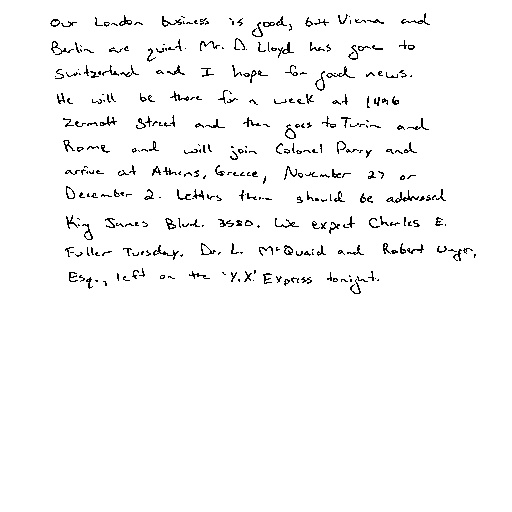 Our London business is good, but Vienna and
Berlin are quiet. Mr. D. Lloyd has gone to
Switzerland and I hope for good news.
He will be there for a week at 1496
Zermott Street and then goes to Turin and
Rome and will join Colonel Parry and
arrive at Athens, Greece, November 27 or
December 2. Letters there should be addressed
King James Blvd. 3580. We expect Charles E.
Fuller Tuesday. Dr. L. McQuaid and Robert Unger,
Esq., left on the 'Y.X.' Express tonight.